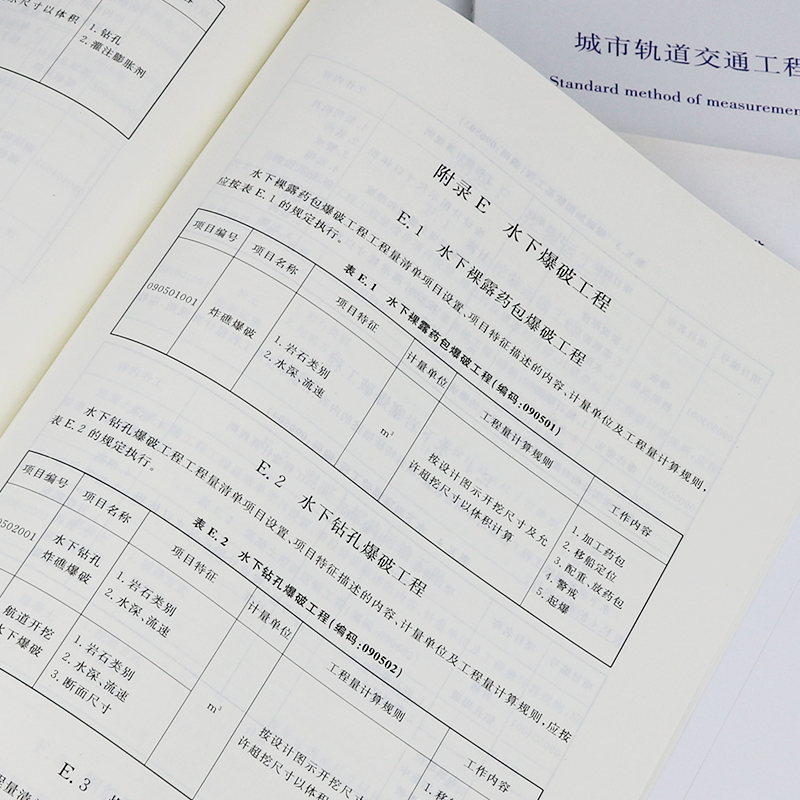 尺寸以体积
1. 钻孔
2. 灌注膨胀剂
城市轨道交通工程
Standard method of measuremen
附录E 水下爆破工程
E.1 水下裸露药包爆破工程
水下裸露药包爆破工程工程量清单项目设置、项目特征描述的内容、计量单位及工程量计算规则,
应按表E.1的规定执行。
表E.1 水下裸露药包爆破工程(编码:090501)
项目编号 项目名称 项目特征 计量单位 工程量计算规则 工作内容
090501001 炸礁爆破
1. 岩石类别
2. 水深、流速
m³
按设计图示开挖尺寸及允
许超挖尺寸以体积计算
1. 加工药包
2. 移船定位
3. 配重、放药包
4. 警戒
5. 起爆
E.2 水下钻孔爆破工程
水下钻孔爆破工程工程量清单项目设置、项目特征描述的内容、计量单位及工程量计算规则,应按
表E.2的规定执行。
表E.2 水下钻孔爆破工程(编码:090502)
项目编号 项目名称 项目特征 计量单位 工程量计算规则 工作内容
0502001
水下钻孔
炸礁爆破
1. 岩石类别
2. 水深、流速
航道开挖
水下爆破
1. 岩石类别
2. 水深、流速
3. 断面尺寸
m³
按设计图示开挖尺寸
许超挖尺寸以体积
1. 移
E.3
程量清